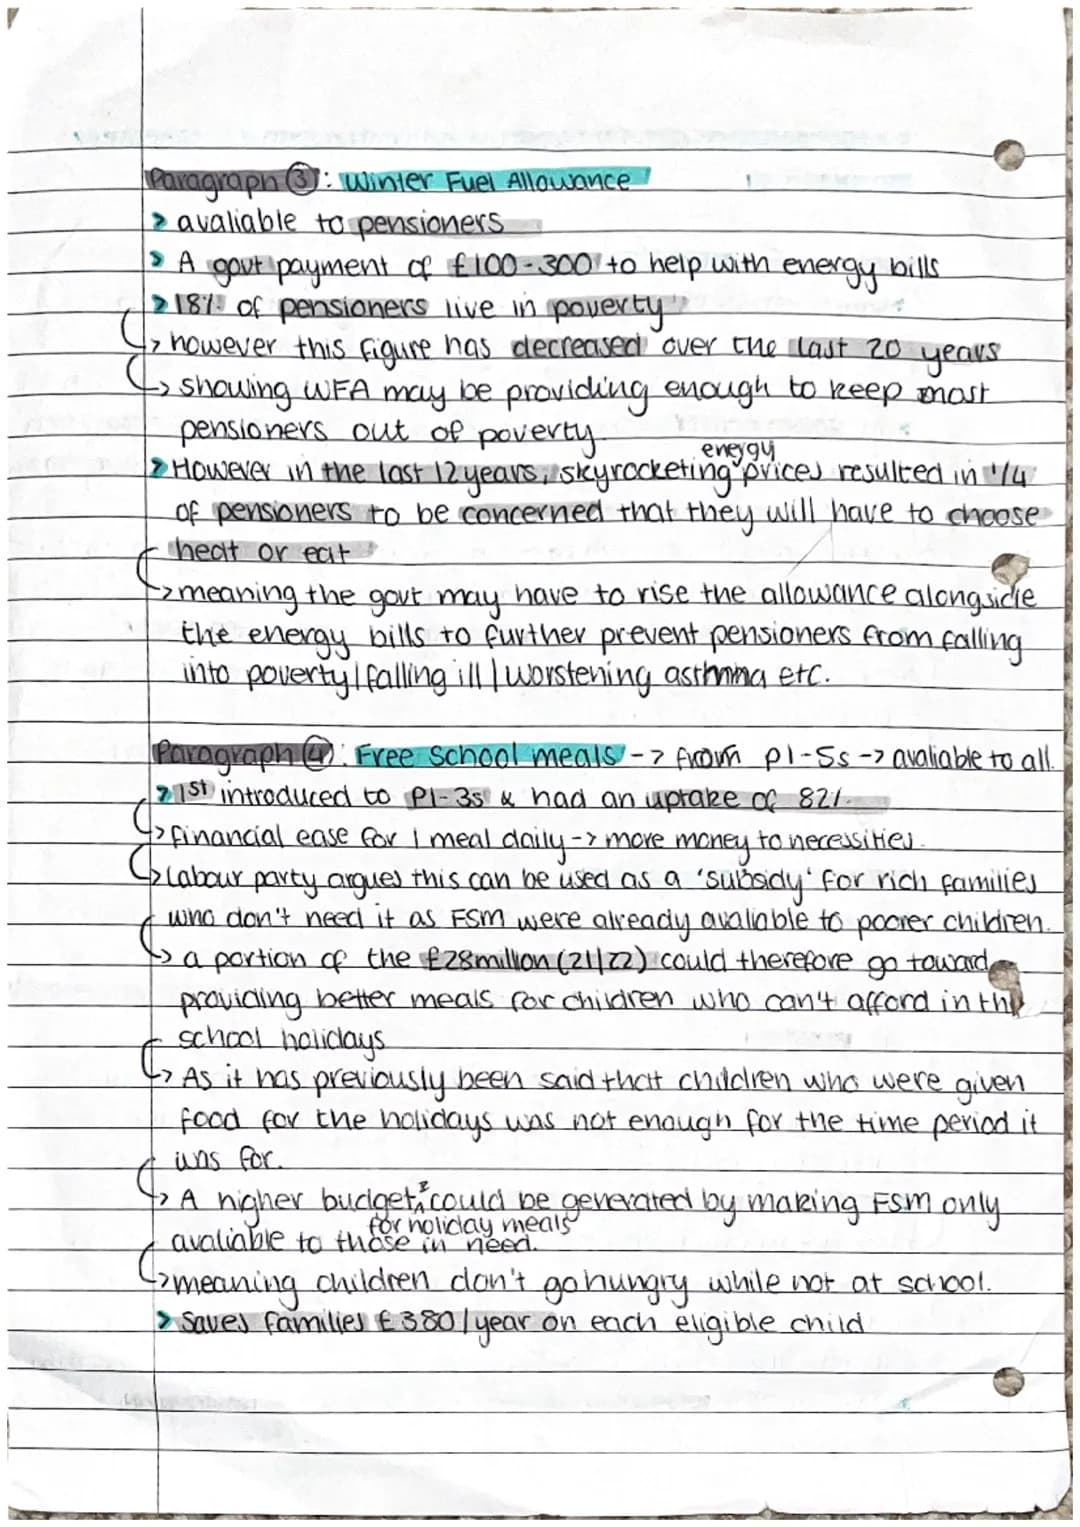 Paragraph ③: Winter Fuel Allowance
> avaliable to pensioners
> A govt payment of £100-300 to help with energy bills
> 18% of pensioners live in poverty
↳ however this figure has decreased over the last 20 years
↳ showing WFA may be providing enough to keep most
pensioners out of poverty
energy
> However in the last 12 years, skyrocketing prices resulted in 1/4
of pensioners to be concerned that they will have to choose
heat or eat
↳ meaning the govt may have to rise the allowance alongside
the energy bills to further prevent pensioners from falling
into poverty/falling ill/worstening asthma etc.
Paragraph ④: Free School meals -> from P1-5s -> avaliable to all.
> 1st introduced to P1-3s & had an uptake of 82%.
↳ financial ease for 1 meal daily -> more money to necessities.
↳ Labour party argues this can be used as a 'subsidy' for rich families
who don't need it as FSM were already avaliable to poorer children.
↳ a portion of the £28million (21/22) could therefore go toward
providing better meals for children who can't afford in the
school holidays
↳ As it has previously been said that children who were given
food for the holidays was not enough for the time period it
was for.
↳ A higher budget, could be generated by making FSM only
for holiday meals
avaliable to those in need.
↳ meaning children don't go hungry while not at school.
> Saves families £380/year on each eligible child